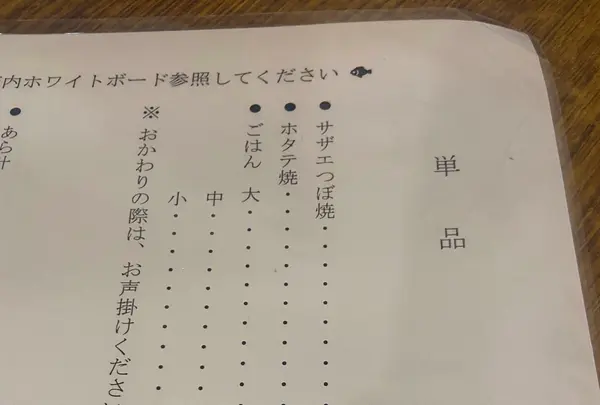 内ホワイトボード参照してください
単品
● サザエつぼ焼・・・・・・・・・
● ホタテ焼・・・・・・・・・・・
● ごはん 大・・・・・・・・・・
中・・・・・・・・・・
小・・・・・・・・・・
※ おかわりの際は、お声掛けくださ
● あら汁